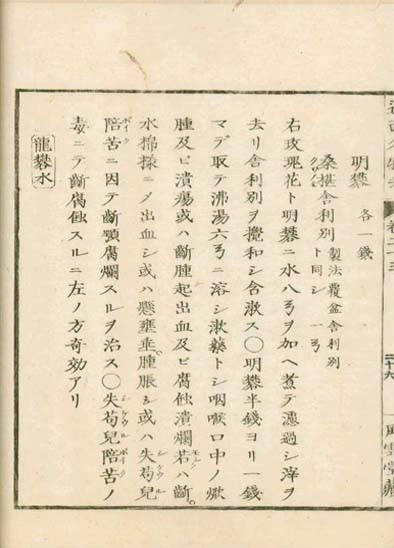 明礬 各一錢
桑椹舎利別 製法覆盆舎利別ト同シ 一弓
右玫瑰花ト明礬ニ水八弓ヲ加ヘ煮テ濾過シ滓ヲ
去リ舎利別ヲ攪和シ含漱ス〇明礬半錢ヨリ一錢
マデ取テ沸湯六弓ニ溶シ漱藥トシ咽喉口中ノ焮
腫及ビ潰瘍或ハ齗腫起出血及ビ腐蝕潰爛若ハ齗
水綿樣ニメ出血シ或ハ懸壅垂腫脹シ或ハ失苟兒
陪苦ニ因テ齗顎腐爛スルヲ治ス〇失苟兒陪苦ノ
毒ニテ齗腐蝕スルニ左ノ方奇効アリ
龍礬水